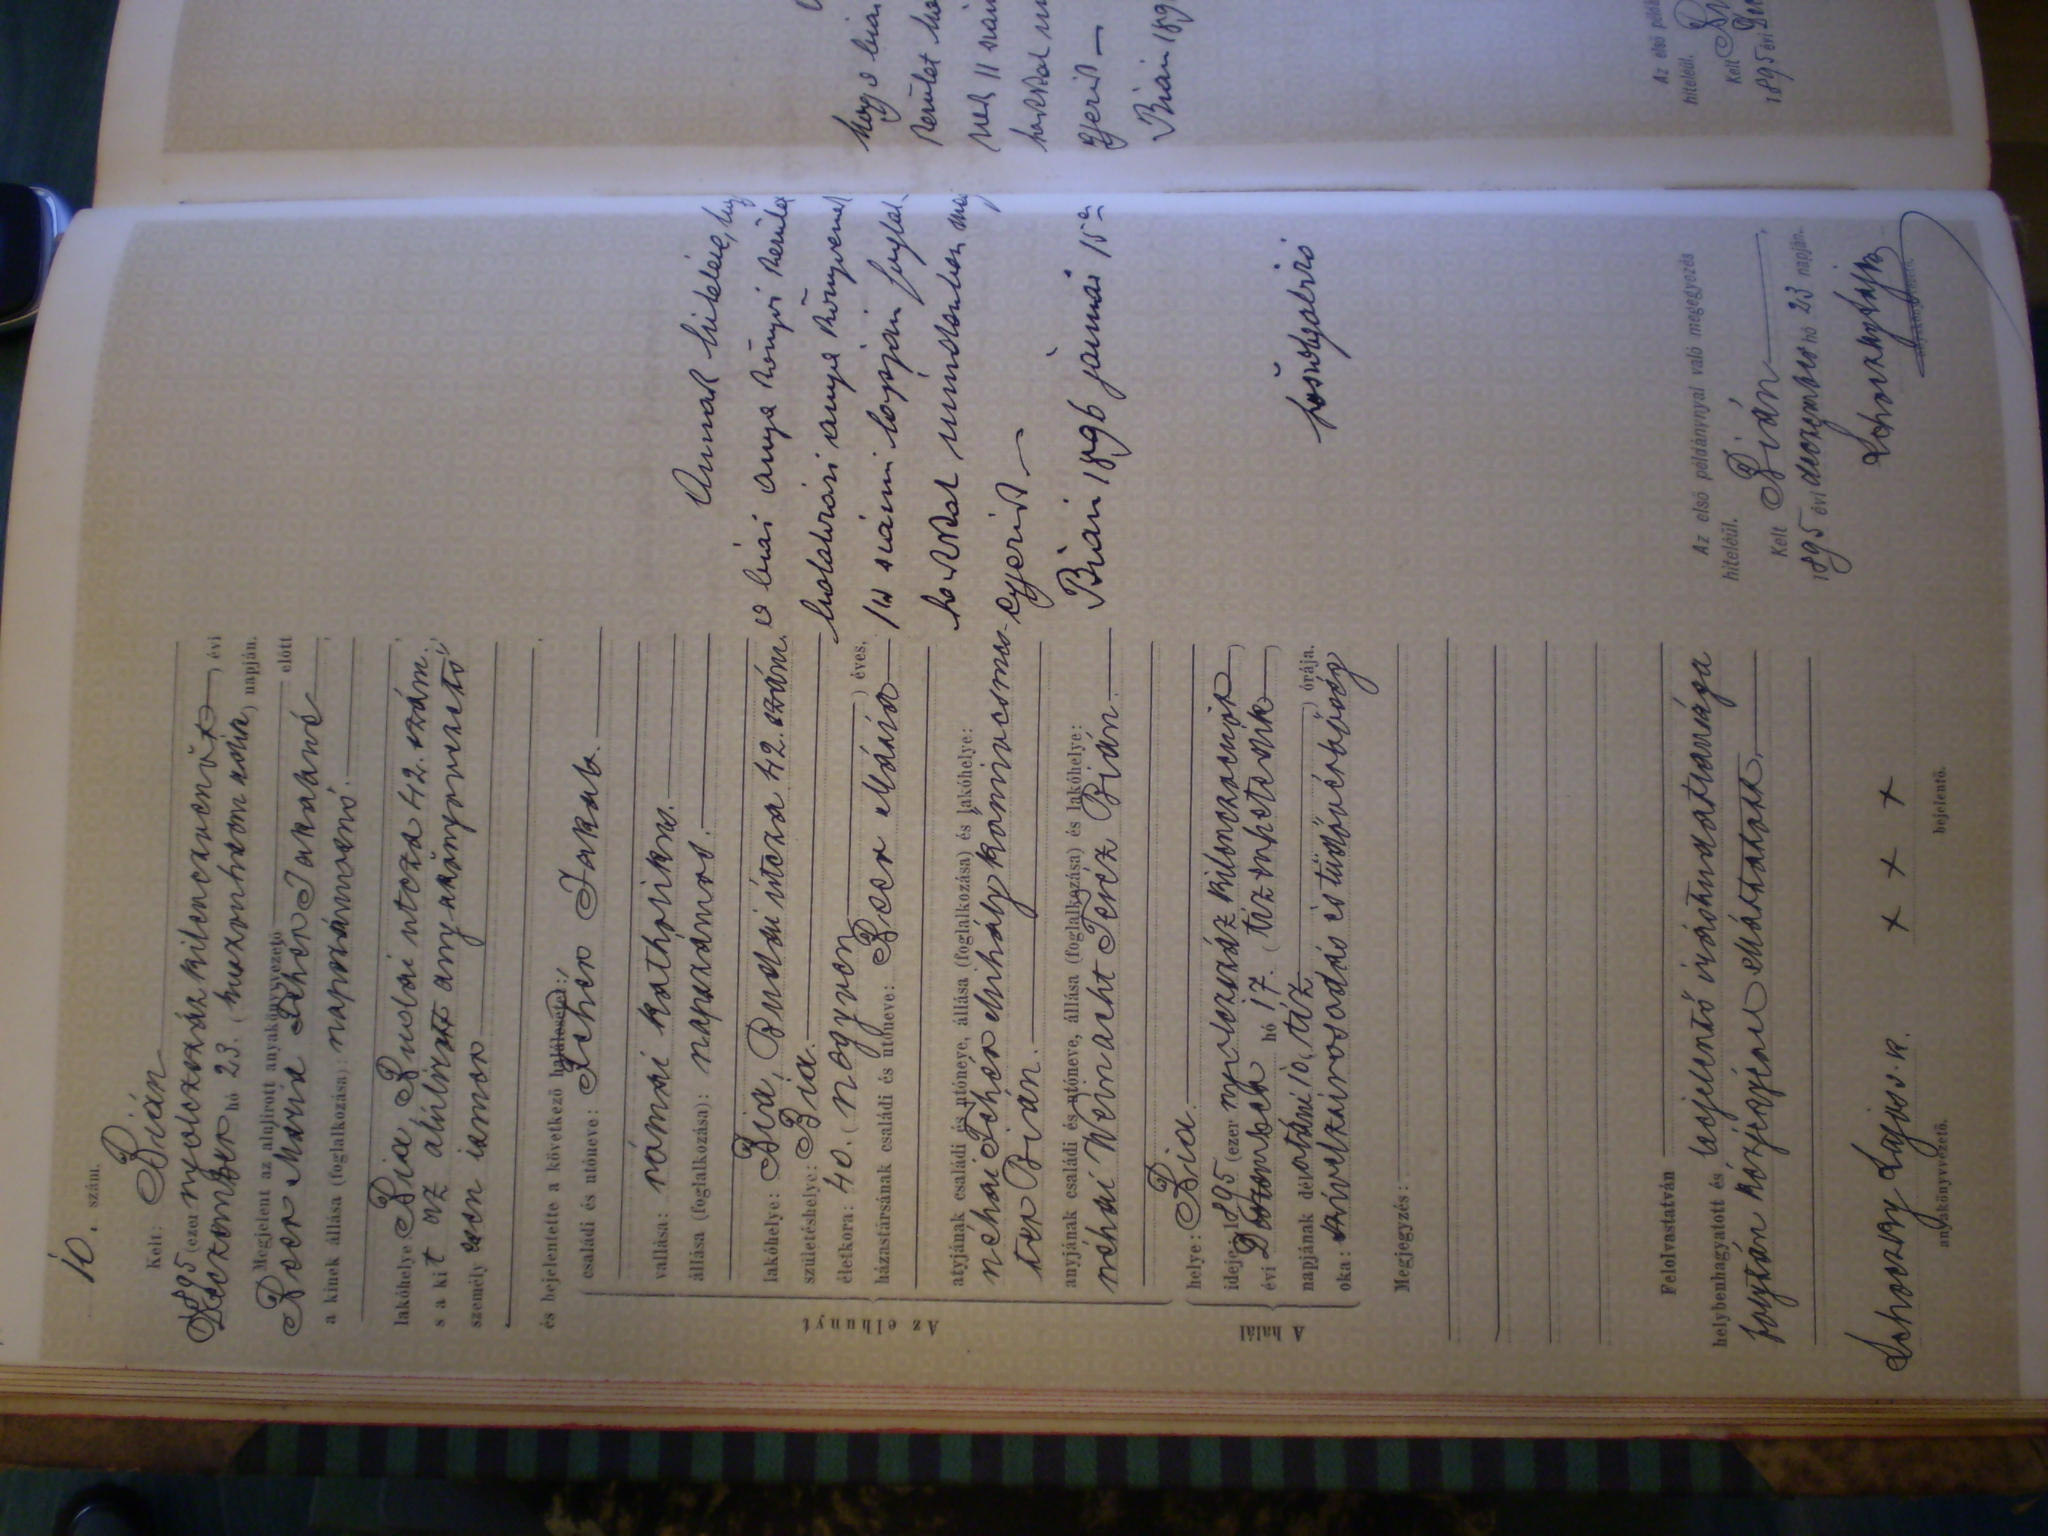 10. szám.
Kelt: Bián
1895 (ezer nyolczszáz kilenczvenöt) évi
Deczember hó 23. (huszonharmadik) napján.
Megjelent az alulirott anyakönyvvezető előtt
Beer Mária Scher Jakabné
a kinek állása (foglalkozása): napszámosnő.
lakóhelye Bia, Budai utcza 42. szám.
s a kit az alúlirott anyakönyvvezető
személyesen ismer
és bejelentette a következő halálesetet:
Az elhunyt
családi és utóneve: Scher Jakab.
vallása: római katholikus.
állása (foglalkozása): napszámos.
lakóhelye: Bia, Budai utcza 42. szám.
születéshelye: Bia.
életkora: 40. (negyven) éves.
házastársának családi és utóneve: Beer Mária
atyjának családi és utóneve, állása (foglalkozása) és lakóhelye:
néhai Scher Mihály kőmívesmes-
ter Bián.
anyjának családi és utóneve, állása (foglalkozása) és lakóhelye:
néhai Weinacht Teréz Bián.
A halál
helye: Bia.
ideje: 1895 (ezer nyolczszáz kilenczvenöt)
évi Deczember hó 17. (tizenhetedik)
napjának délutáni 10, tíz órája.
oka: szívelzsirosodás és tüdővérbőség
Megjegyzés:
Felolvastatván
helybenhagyatott és bejelentő írástudatlansága
folytán kézjegyével elláttatott.
Schvarcz Lajos s. k.
anyakönyvvezető.
x x x
bejelentő.
Annak hiteléül, hogy
a biai anya könyvi kerület
halotti anya könyvének
10 számú lapján foglal-
takkal mindenben meg
egyezik
Bián 1896 január 15én
Az első példánynyal való megegyezés
hiteléül.
Kelt Bián
1895 évi deczember hó 23 napján.
anyakönyvvezető.
hogy a biai
kerület
nek 11 szám
takkal
egyezik
Bián 189
Az első példá
hiteléül.
Kelt
1895 évi De